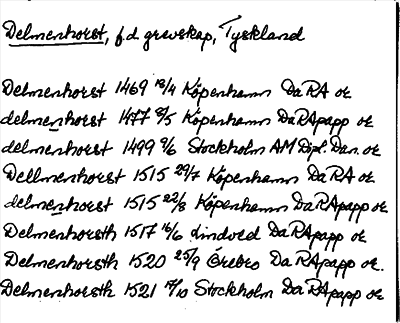 Delmenhorst, f d grevskap, Tyskland
Delmenhorst 1469 18/4 Köpenhamn DaRA or
delmenhorst 1477 8/5 Köpenhamn DaRApapp or
delmenhorst 1499 9/6 Stockholm AM Dipl. Dan. or
Dellmenhorst 1515 29/7 Köpenhamn DaRA or
delmenhorst 1515 22/8 Köpenhamn DaRApapp or
Delmenhorsth 1517 16/6 DaRApapp or
Delmenhorsth 1520 25/9 Örebro DaRApapp or.
Delmenhorsth 1521 Stockholm DaRApapp or